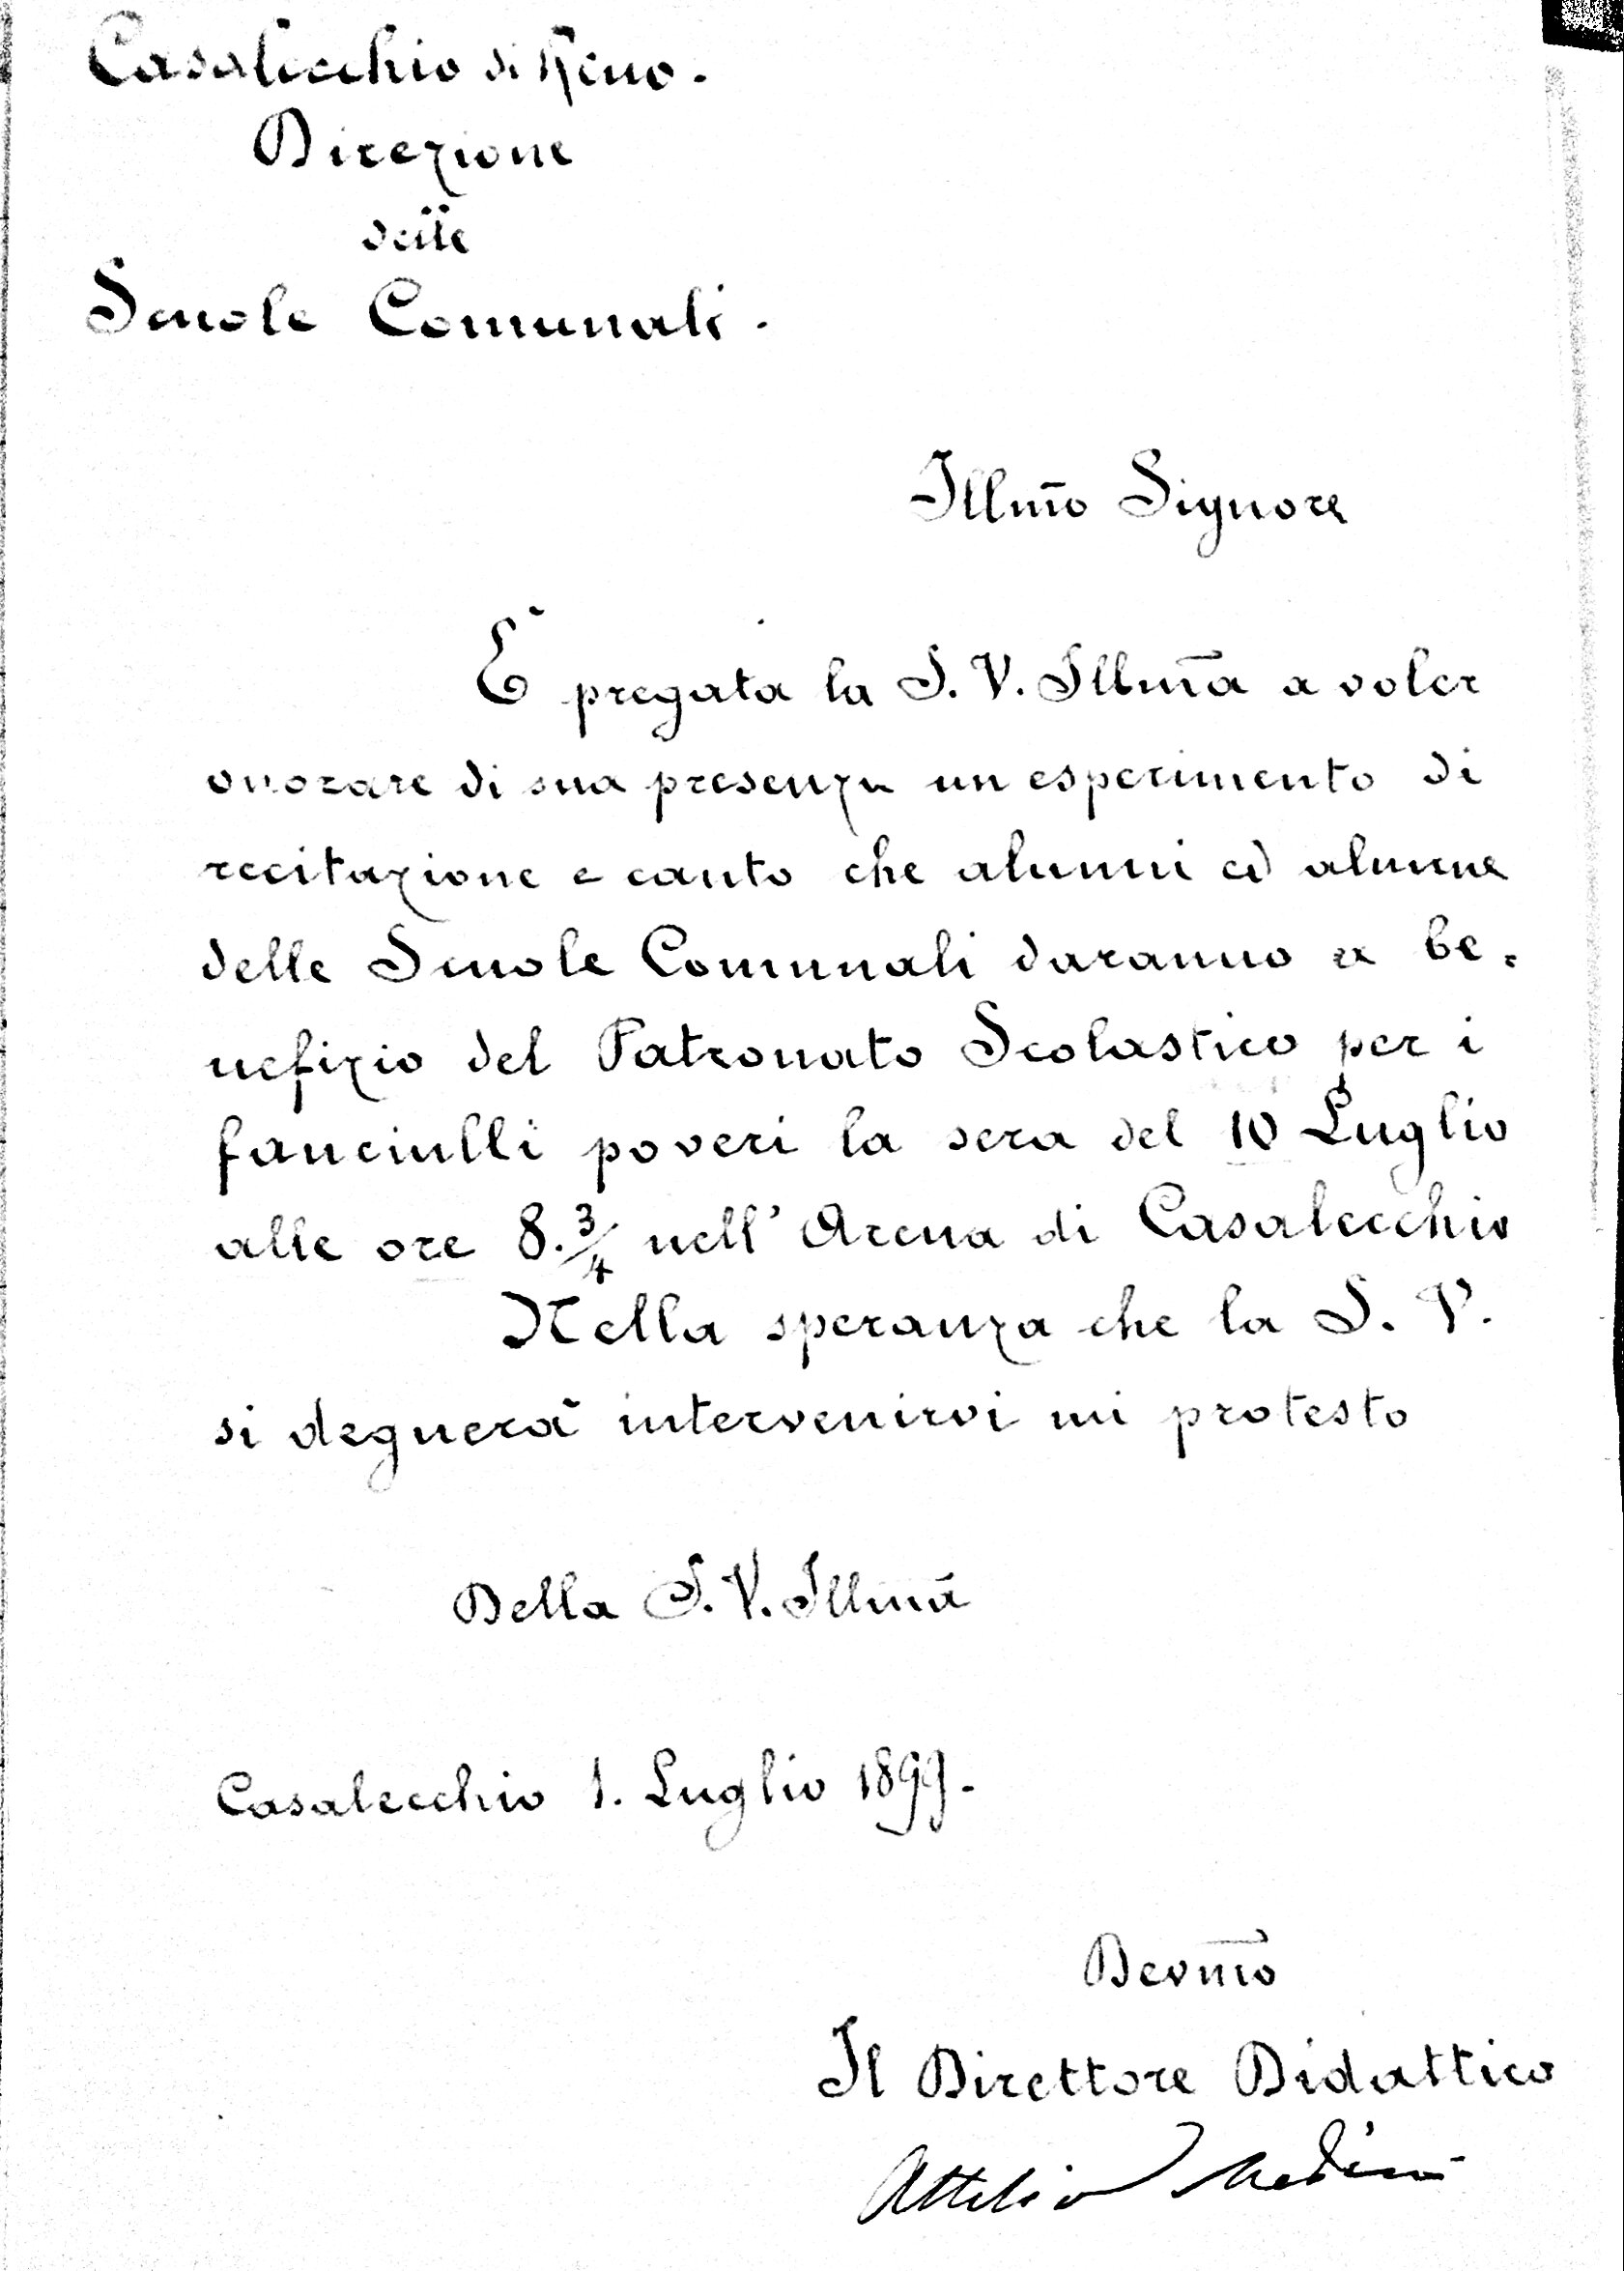 Casalecchio di Reno.
Direzione
delle
Scuole Comunali.
Illm̄o Signore
È pregata la S. V. Illm̄a a voler
onorare di sua presenza un esperimento di
recitazione e canto che alunni ed alunne
delle Scuole Comunali daranno a be=
nefizio del Patronato Scolastico per i
fanciulli poveri la sera del 10 Luglio
alle ore 8.3/4 nell'Arena di Casalecchio
Nella speranza che la S. V.
si degnerà intervenirvi mi protesto
Della S. V. Illm̄a
Casalecchio 1. Luglio 1899.
Devm̄o
Il Direttore Didattico
Attilio